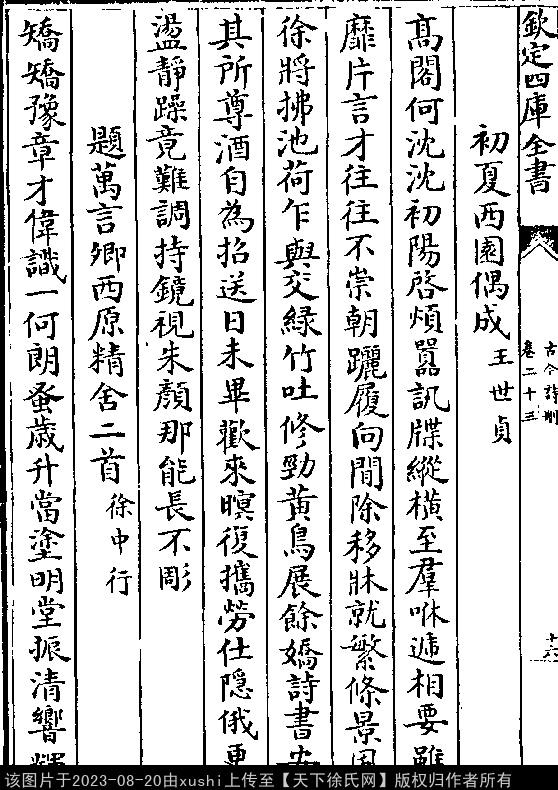 欽定四庫全書
古今詩刪
卷二十三
十六
初夏西園偶成
王世貞
高閣何沈沈初陽啓煩囂訊牒縱橫至羣咻遞相要雖
靡片言才往往不崇朝躧履向閒除移牀就繁條景風
徐將拂池荷乍與交綠竹吐修勁黃鳥展餘嬌詩書安
其所尊酒自為招送日未畢歡來暝復攜勞仕隱俄更
盪靜躁竟難調持鏡視朱顏那能長不彫
題萬言卿西原精舍二首
徐中行
矯矯豫章才偉識一何朗蚤歲升當塗明堂振清響
该图片于2023-08-20由xushi上传至【天下徐氏网】版权归作者所有